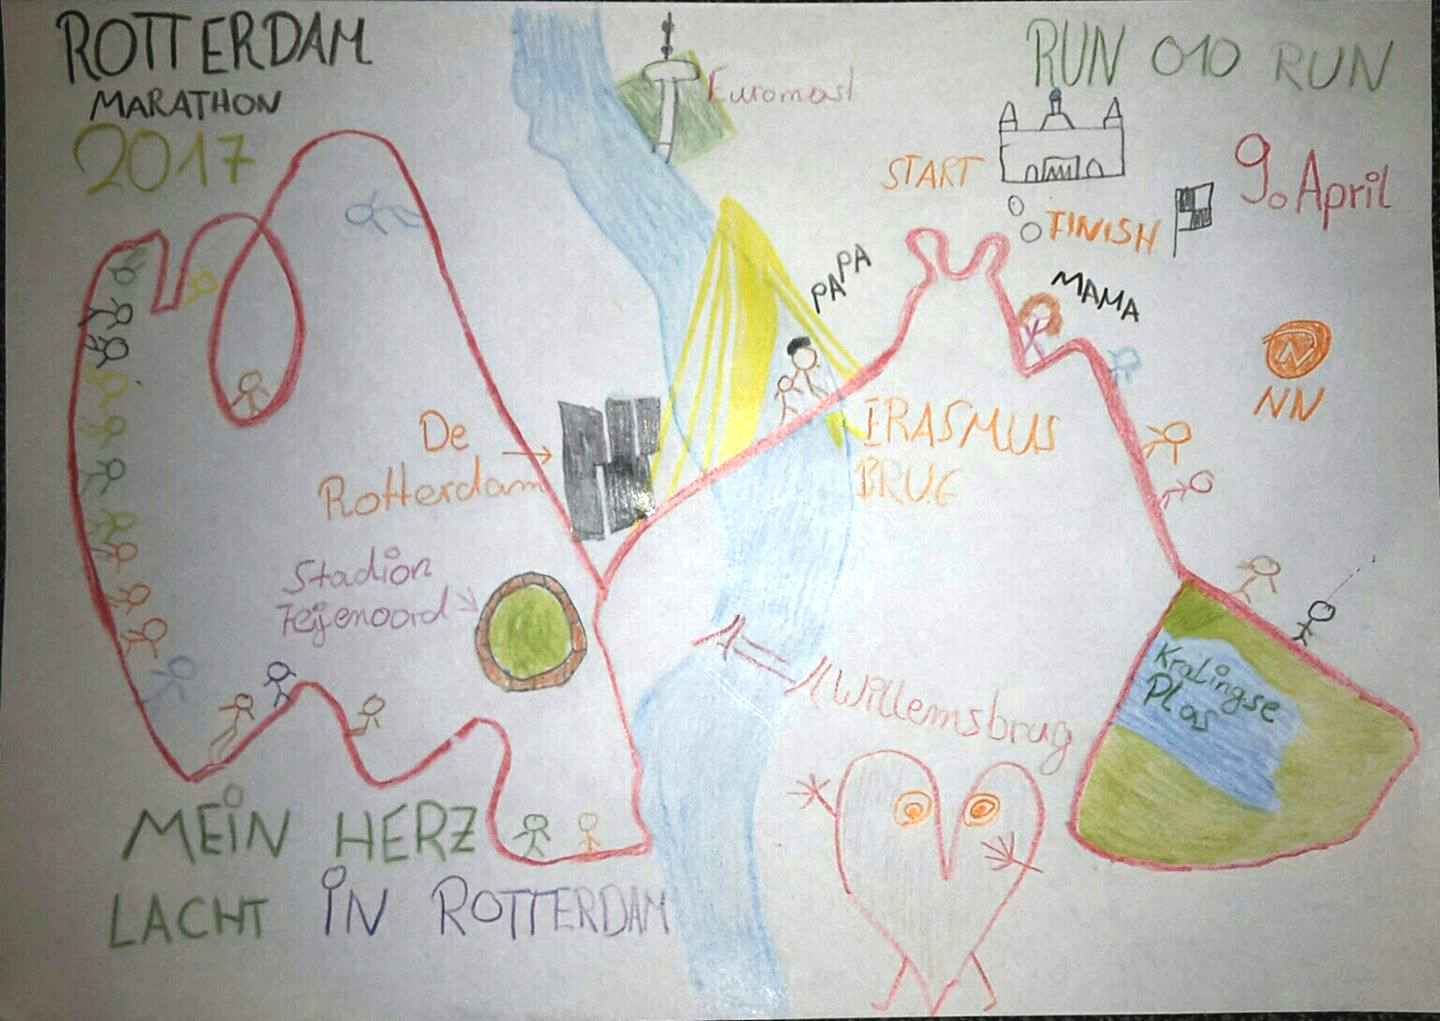 ROTTERDAM
MARATHON
2017
Euromast
RUN 010 RUN
START
9. April
FINISH
PAPA
MAMA
N
NN
De
Rotterdam
ERASMUS
BRUG
Stadion
Feijenoord
Kralingse
Plas
Willemsbrug
MEiN HERZ
LACHT iN ROTTERDAM